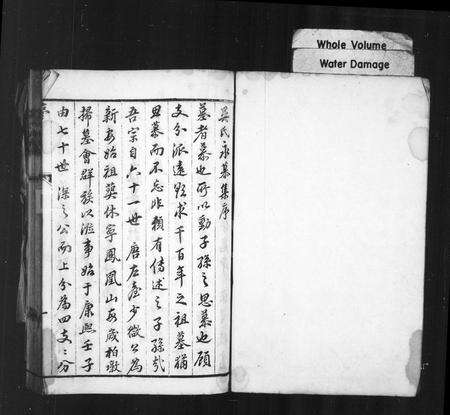 Whole Volume
Water Damage
吳氏永慕集序
墓者慕也所以動子孫之思慕也顧
支分派遠欲求千百年之祖墓猶
且慕而不忘非賴有傳述之子孫哉
吾宗自六十一世唐左臺少微公為
新安始祖葬休寧鳳凰山每歲柏墩
掃墓會群族以蒞事始于康熙壬子
由七十世深之公而上分為四支支分